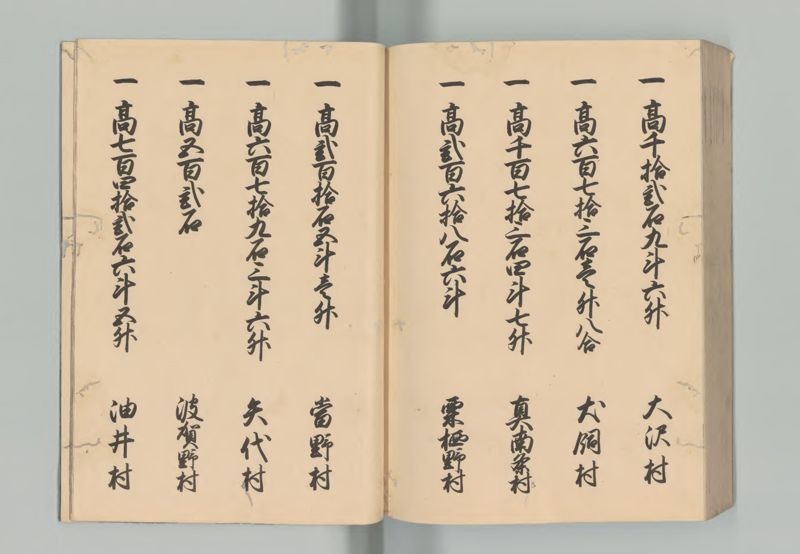 一高千拾弐石九斗六升 大沢村
一高六百七拾三石壱升八合 犬飼村
一高千百七拾三石四斗七升 真南条村
一高弐百六拾八石六斗 栗栖野村
一高弐百拾石五斗壱升 當野村
一高六百七拾九石三斗六升 矢代村
一高五百弐石 波賀野村
一高七百四拾弐石六斗五升 油井村